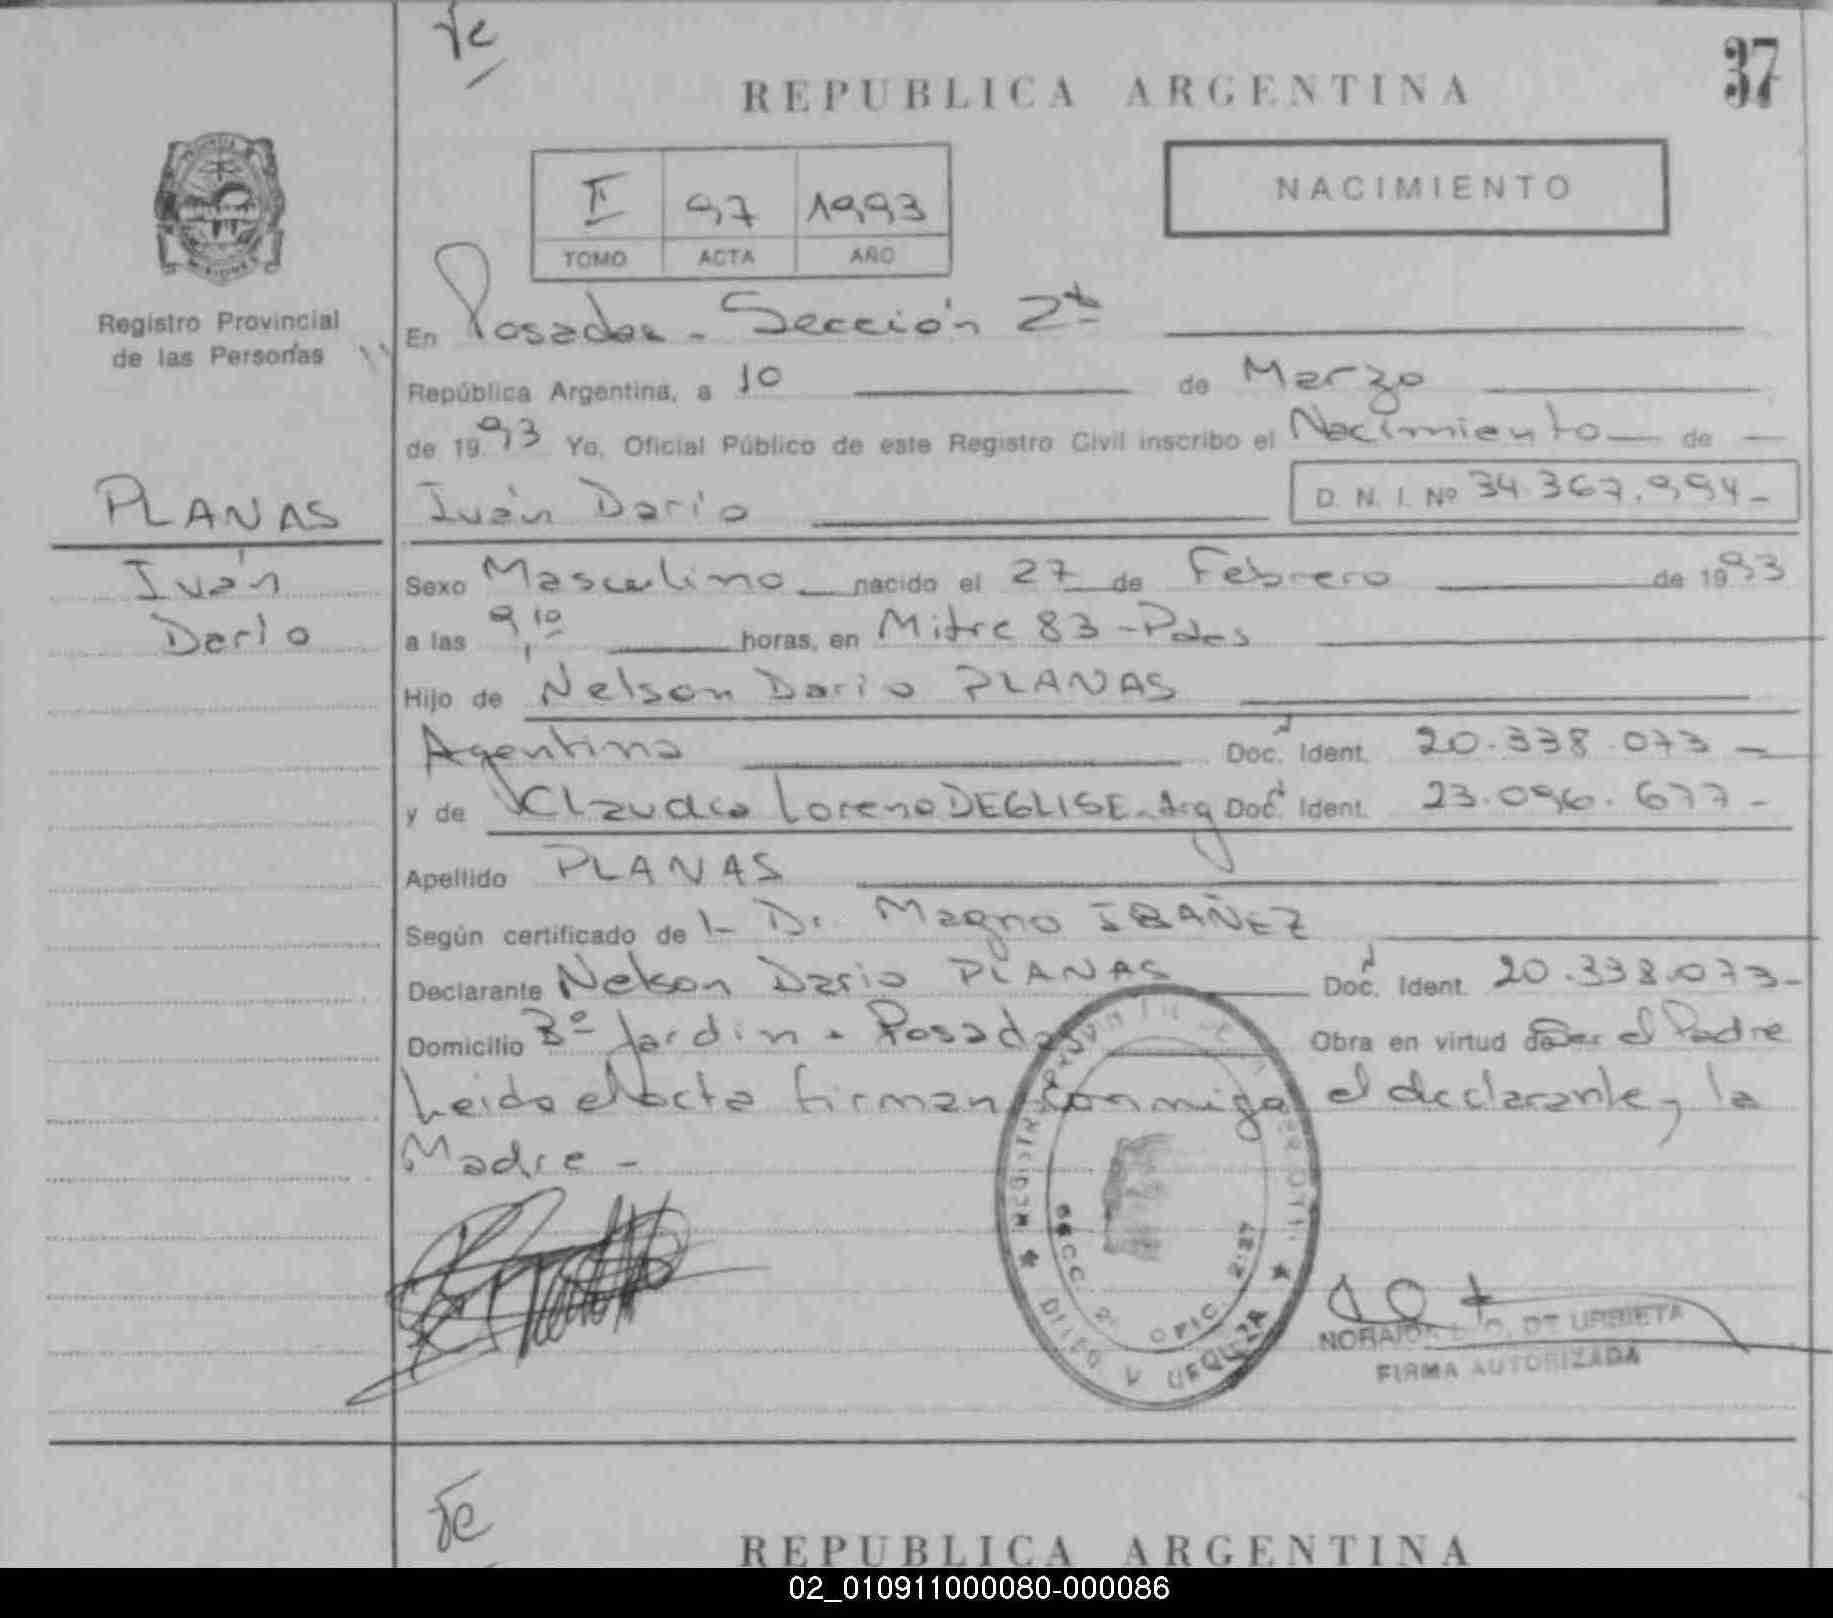 REPUBLICA ARGENTINA
37
II 97 1993
TOMO ACTA AÑO
NACIMIENTO
Registro Provincial
de las Personas
En Posadas - Sección 2ª
República Argentina, a 10 de Marzo
de 1993 Yo, Oficial Público de este Registro Civil inscribo el Nacimiento de
PLANAS
Iván Dario D. N. I. Nº 34.367.994-
Iván
Dario
Sexo Masculino nacido el 27 de Febrero de 1993
a las 9,10 horas, en Mitre 83 - Pdas
Hijo de Nelson Dario PLANAS
Argentino Doc. Ident. 20.338.073-
y de Claudia Lorena DEGLISE - Arg Doc. Ident. 23.096.677-
Apellido PLANAS
Según certificado de l Dr. Magno IBAÑEZ
Declarante Nelson Dario PLANAS Doc. Ident. 20.338.073-
Domicilio Bº Jardin - Posadas Obra en virtud de Ser el Padre
Leida el acta firman conmigo el declarante y la
Madre -
SECC. 2ª OFIC.
URQUIZA
DE URBIETA
FIRMA AUTORIZADA
REPUBLICA ARGENTINA
02_010911000080-000086